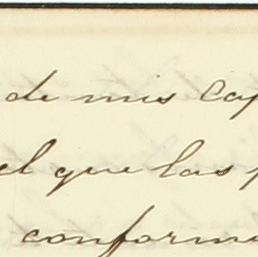 de mis Cap
el que las p
conforme